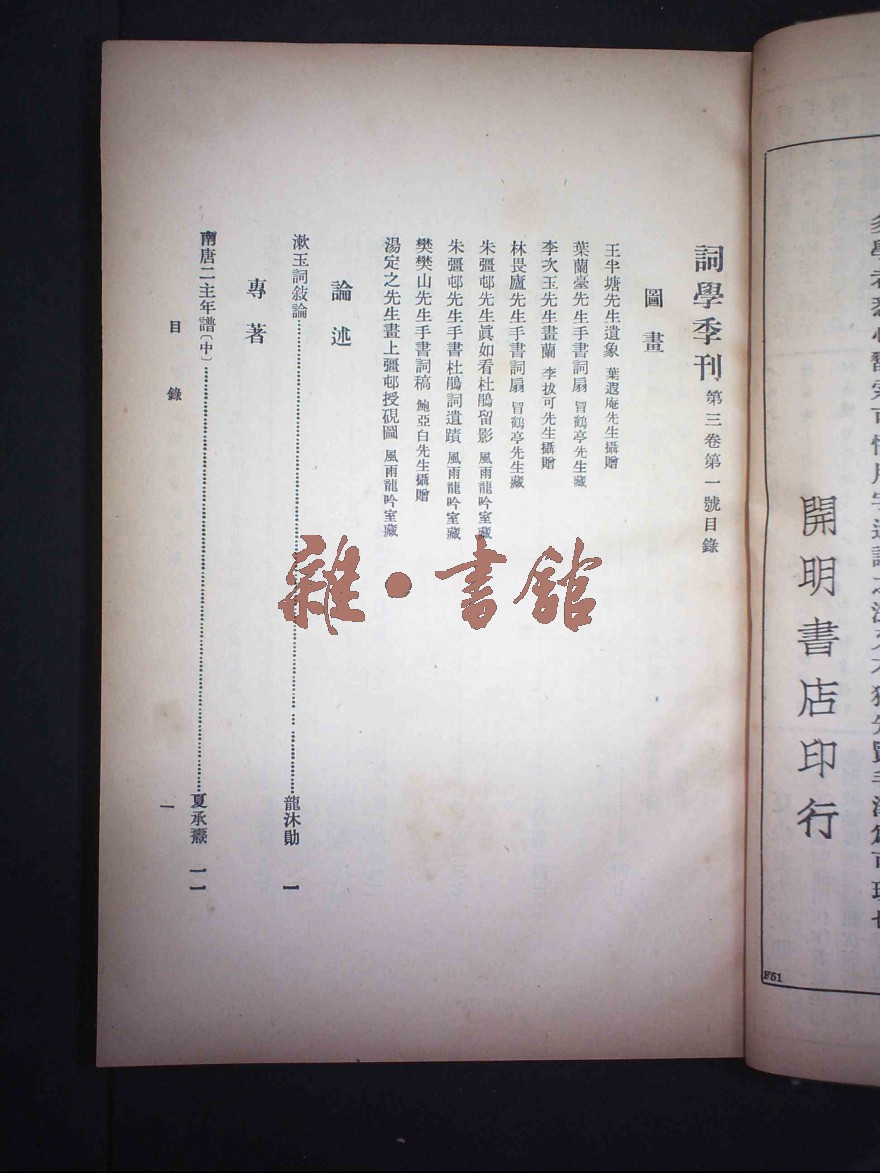 詞學季刊 第三卷第一號目錄
圖畫
王半塘先生遺象 葉遐庵先生攝贈
葉蘭臺先生手書詞扇 冒鶴亭先生藏
李次玉先生畫蘭 李拔可先生攝贈
林畏廬先生手書詞扇 冒鶴亭先生藏
朱彊邨先生眞如看杜鵑留影 風雨龍吟室藏
朱彊邨先生手書杜鵑詞遺蹟 風雨龍吟室藏
樊樊山先生手書詞稿 鮑亞白先生攝贈
湯定之先生畫上彊邨授硯圖 風雨龍吟室藏
論述
漱玉詞敍論……龍沐勛 一
專著
南唐二主年譜(中)……夏承燾 一一
目錄
一
開明書店印行
F51
雜·書館